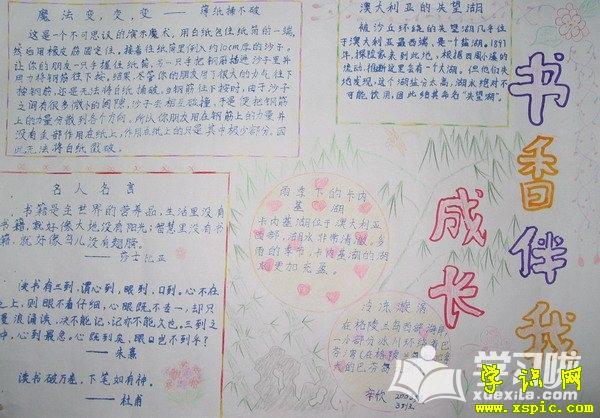 魔法变,变,变——薄纸捅不破
这是一个不可思议的演术魔术,用白纸包住纸筒的一端,
然后用橡皮筋固定住,接着往纸筒里倒入约10cm厚的沙子。
让你的朋友一只手握住纸筒,另一只手把钢筋插进沙子里并
用力将钢筋往下按,结果不管你的朋友用了很大的力气往下
按钢筋,还是无法将白纸捅破。当钢筋往下按时,由于沙子
之间有很多微小的间隙,沙子会相互碰撞,于是便把钢筋
上的力量分散到各个方向,所以你朋友用在钢筋上的力量并
没有全部作用在纸上,作用在纸上的只是其中极少部分,因
此无法将白纸戳破。
澳大利亚的失望湖
被沙丘环绕的失望湖几乎位
于澳大利亚最西端,是一个盐湖。1897
年,探险家来到此地,根据西风小溪的
流动,推断这里会有一个大湖。但他们失
地发现,这个湖盐分太高,湖水绝对不
可能饮用,因此给其命名“失望湖”
书香伴我
成长
名人名言
书籍是全世界的营养品,生活里没有
书籍,就好像大地没有阳光;智慧里没有书
籍,就好像鸟儿没有翅膀。
——莎士比亚
读书有三到,谓心到,眼到,口到。心不在
之上,则眼不看仔细,心眼既不专一,却只
漫浪诵读,决不能记,记亦不能久也。三到之
中,心到最急,心既到矣,眼口岂不到乎?
——朱熹
读书破万卷,下笔如有神。
——杜甫
雨季下的卡内
基湖
卡内基湖位于澳大利亚
西部,湖水非常清澈,多
雨的季节,卡内基湖的湖
水更加充盈。
冰冻漩涡
在格陵兰岛西部海岸,
一小部分冰川环绕着巴
芬湾
学习啦
xuexila.com
学识网
www.xspic.com